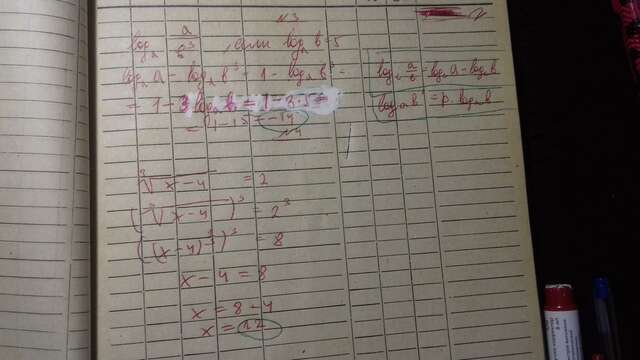 N3
log_a a/b³, если log_a b=5
log_a a - log_a b³ = 1 - log_a b³ =
= 1 - 3 log_a b = 1 - 3·5 =
= 1 - 15 = -14
log_a a/b = log_a a - log_a b
log_a b^p = p · log_a b
³√x-4 = 2
(³√x-4)³ = 2³
((x-4)^⅓)³ = 8
x - 4 = 8
x = 8 + 4
x = 12